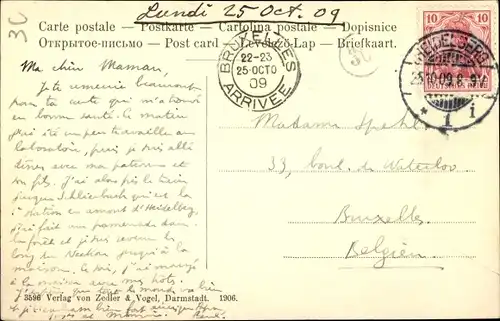 Lundi 25 Oct. 09
Carte postale – Postkarte – Cartolina postale – Dopisnice
Открытое-письмо – Post card – Levelező-Lap – Briefkaart.
BRUXELLES
22-23
25-OCTO
09
ARRIVÉE
10 10
HEIDELBERG
25.10.09.8-9V.
* 1 i
Ma chère Maman,
Je te remercie beaucoup
pour ta carte qui m'a
en bonne santé. Le matin
j'ai été un peu travailler au
laboratoire, puis je suis allé
dîner avec ma patronne et
son fils. J'ai alors pris le train
jusque Schlierbach qui est la
station en amont d'Heidelberg.
j'ai fait une promenade dans
la forêt et je suis revenu le
long du Neckar jusqu'à la
maison. Le soir, j'ai mangé
à la maison avec mes hôtes.
J'espère que tout le monde va bien
et
et Mamie. René.
Madame
33, boul. de Waterloo
Bruxelles
Belgien
3596 Verlag von Zedler & Vogel, Darmstadt. 1906.